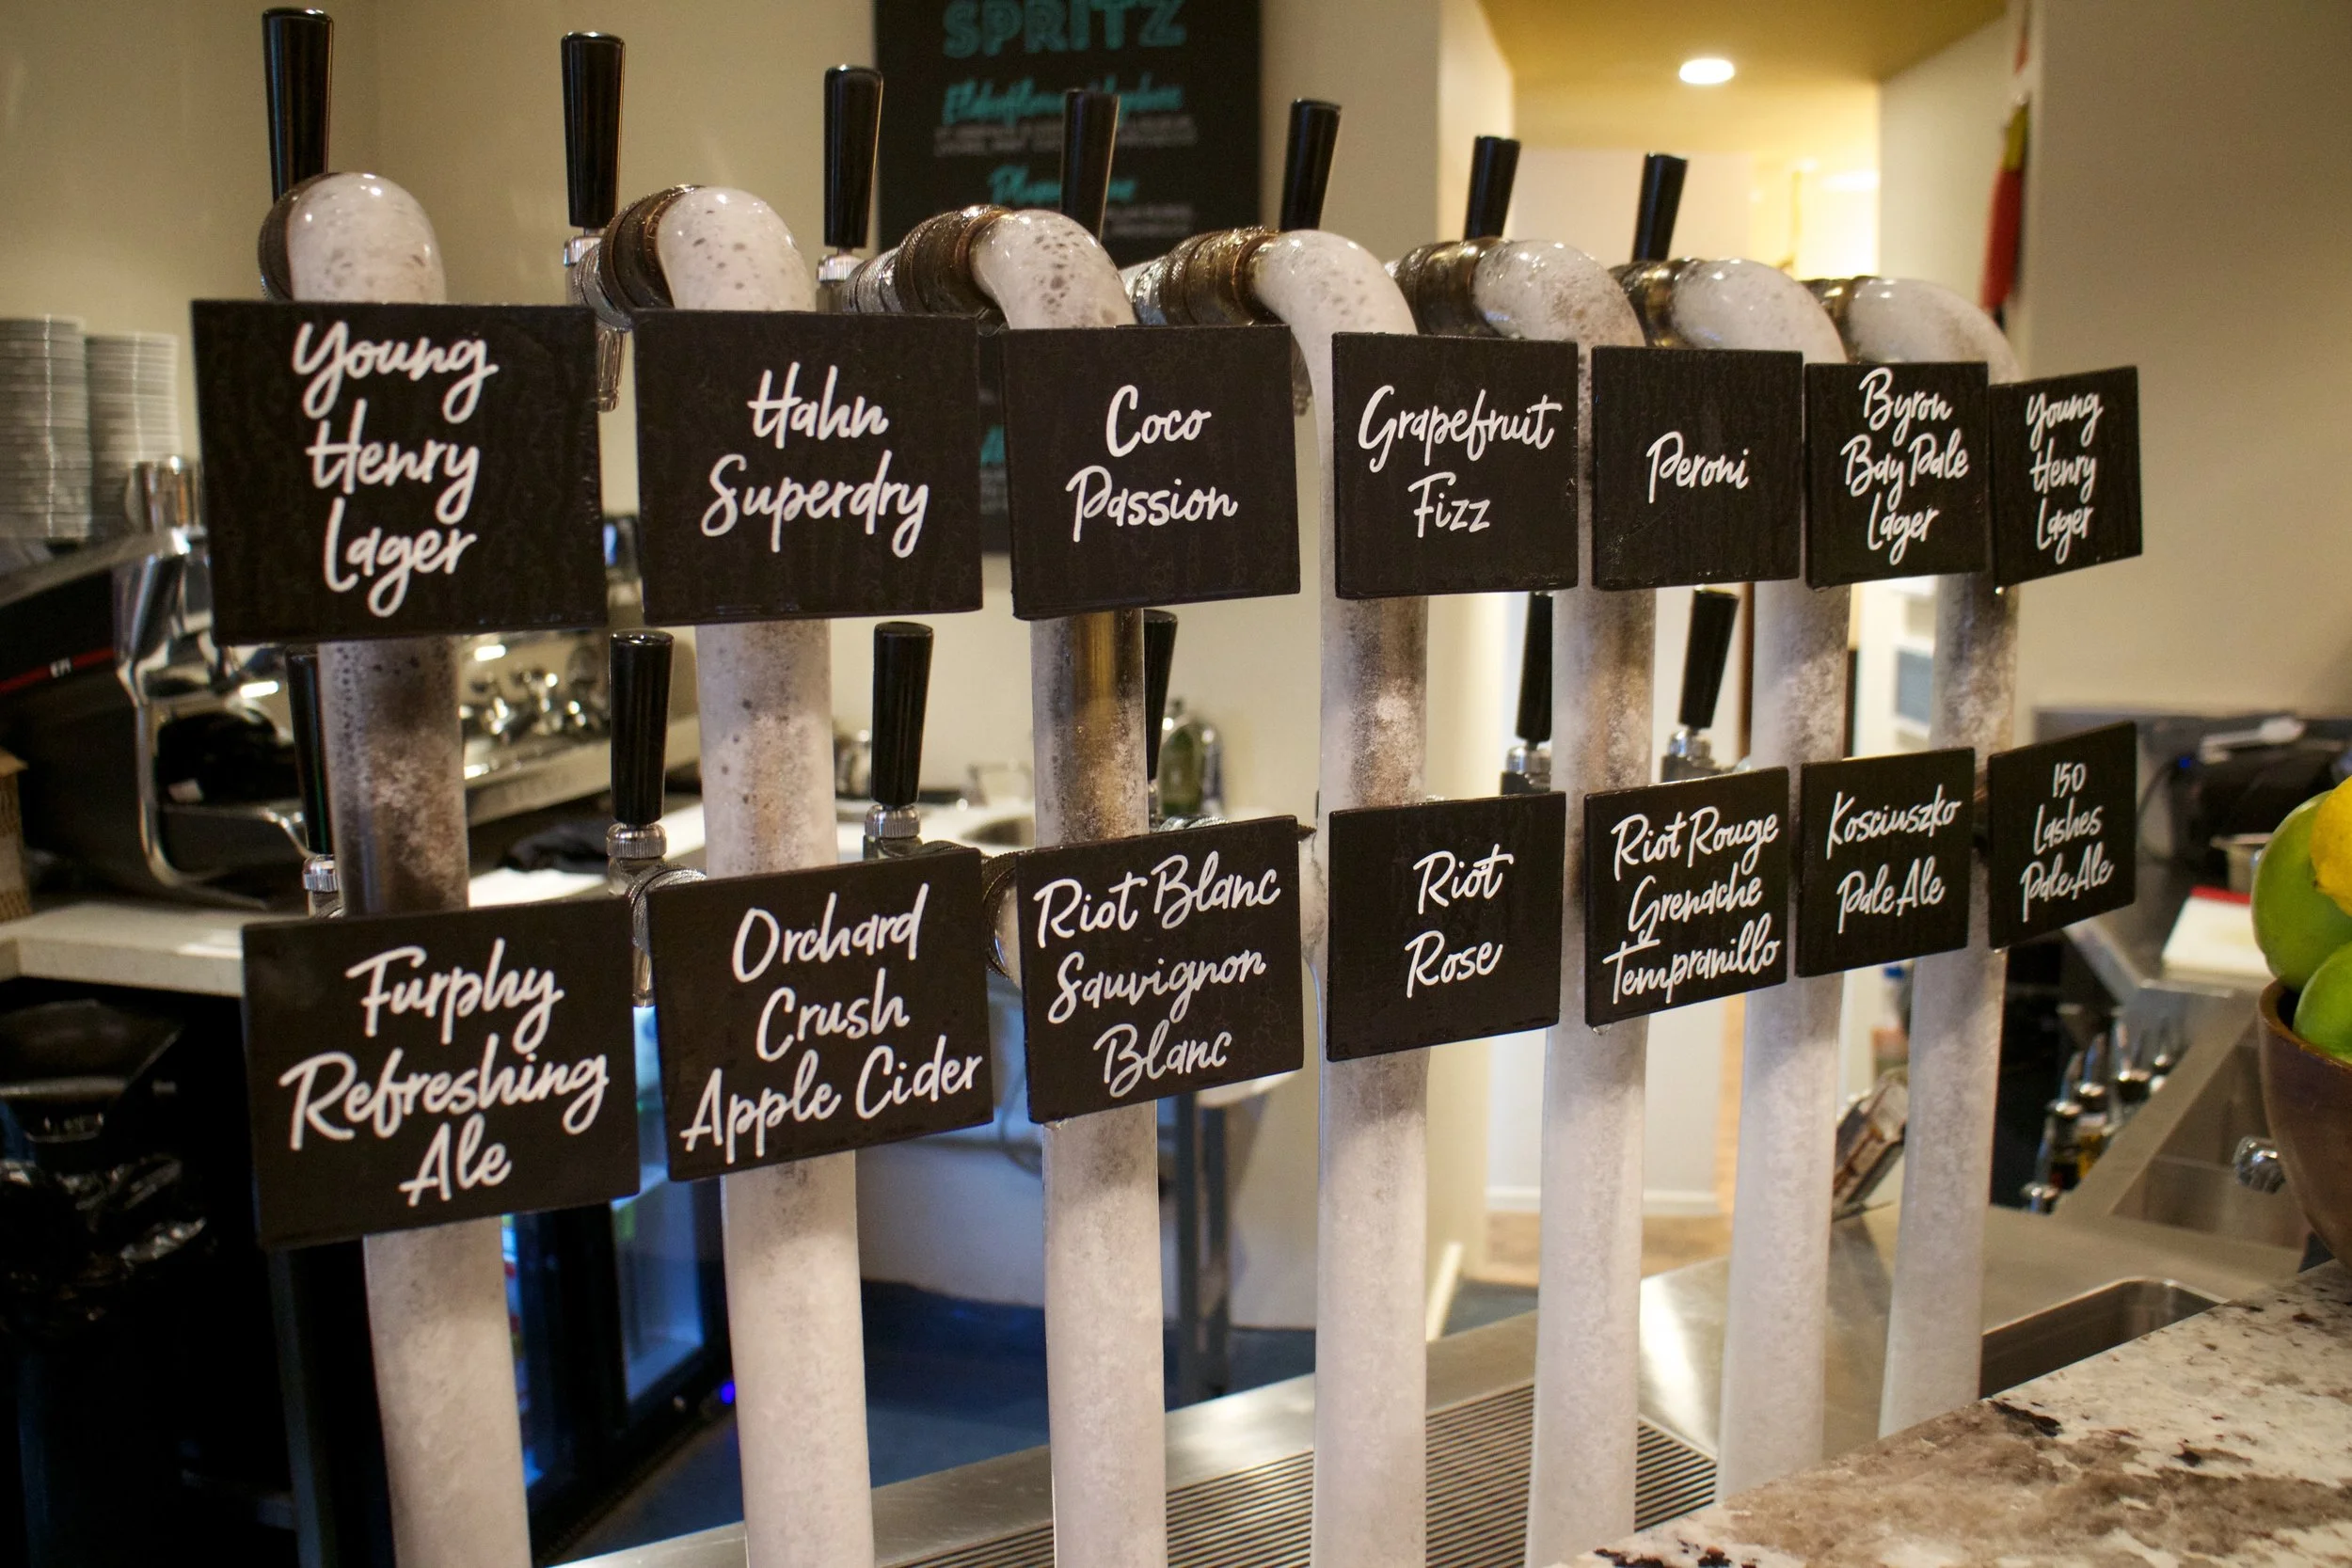 SPRITZ
Young
Henry
Lager
Hahn
Superdry
Coco
Passion
Grapefruit
Fizz
Peroni
Byron
Bay Pale
Lager
Young
Henry
Lager
Furphy
Refreshing
Ale
Orchard
Crush
Apple Cider
Riot Blanc
Sauvignon
Blanc
Riot
Rose
Riot Rouge
Grenache
Tempranillo
Kosciuszko
Pale Ale
150
Lashes
Pale Ale